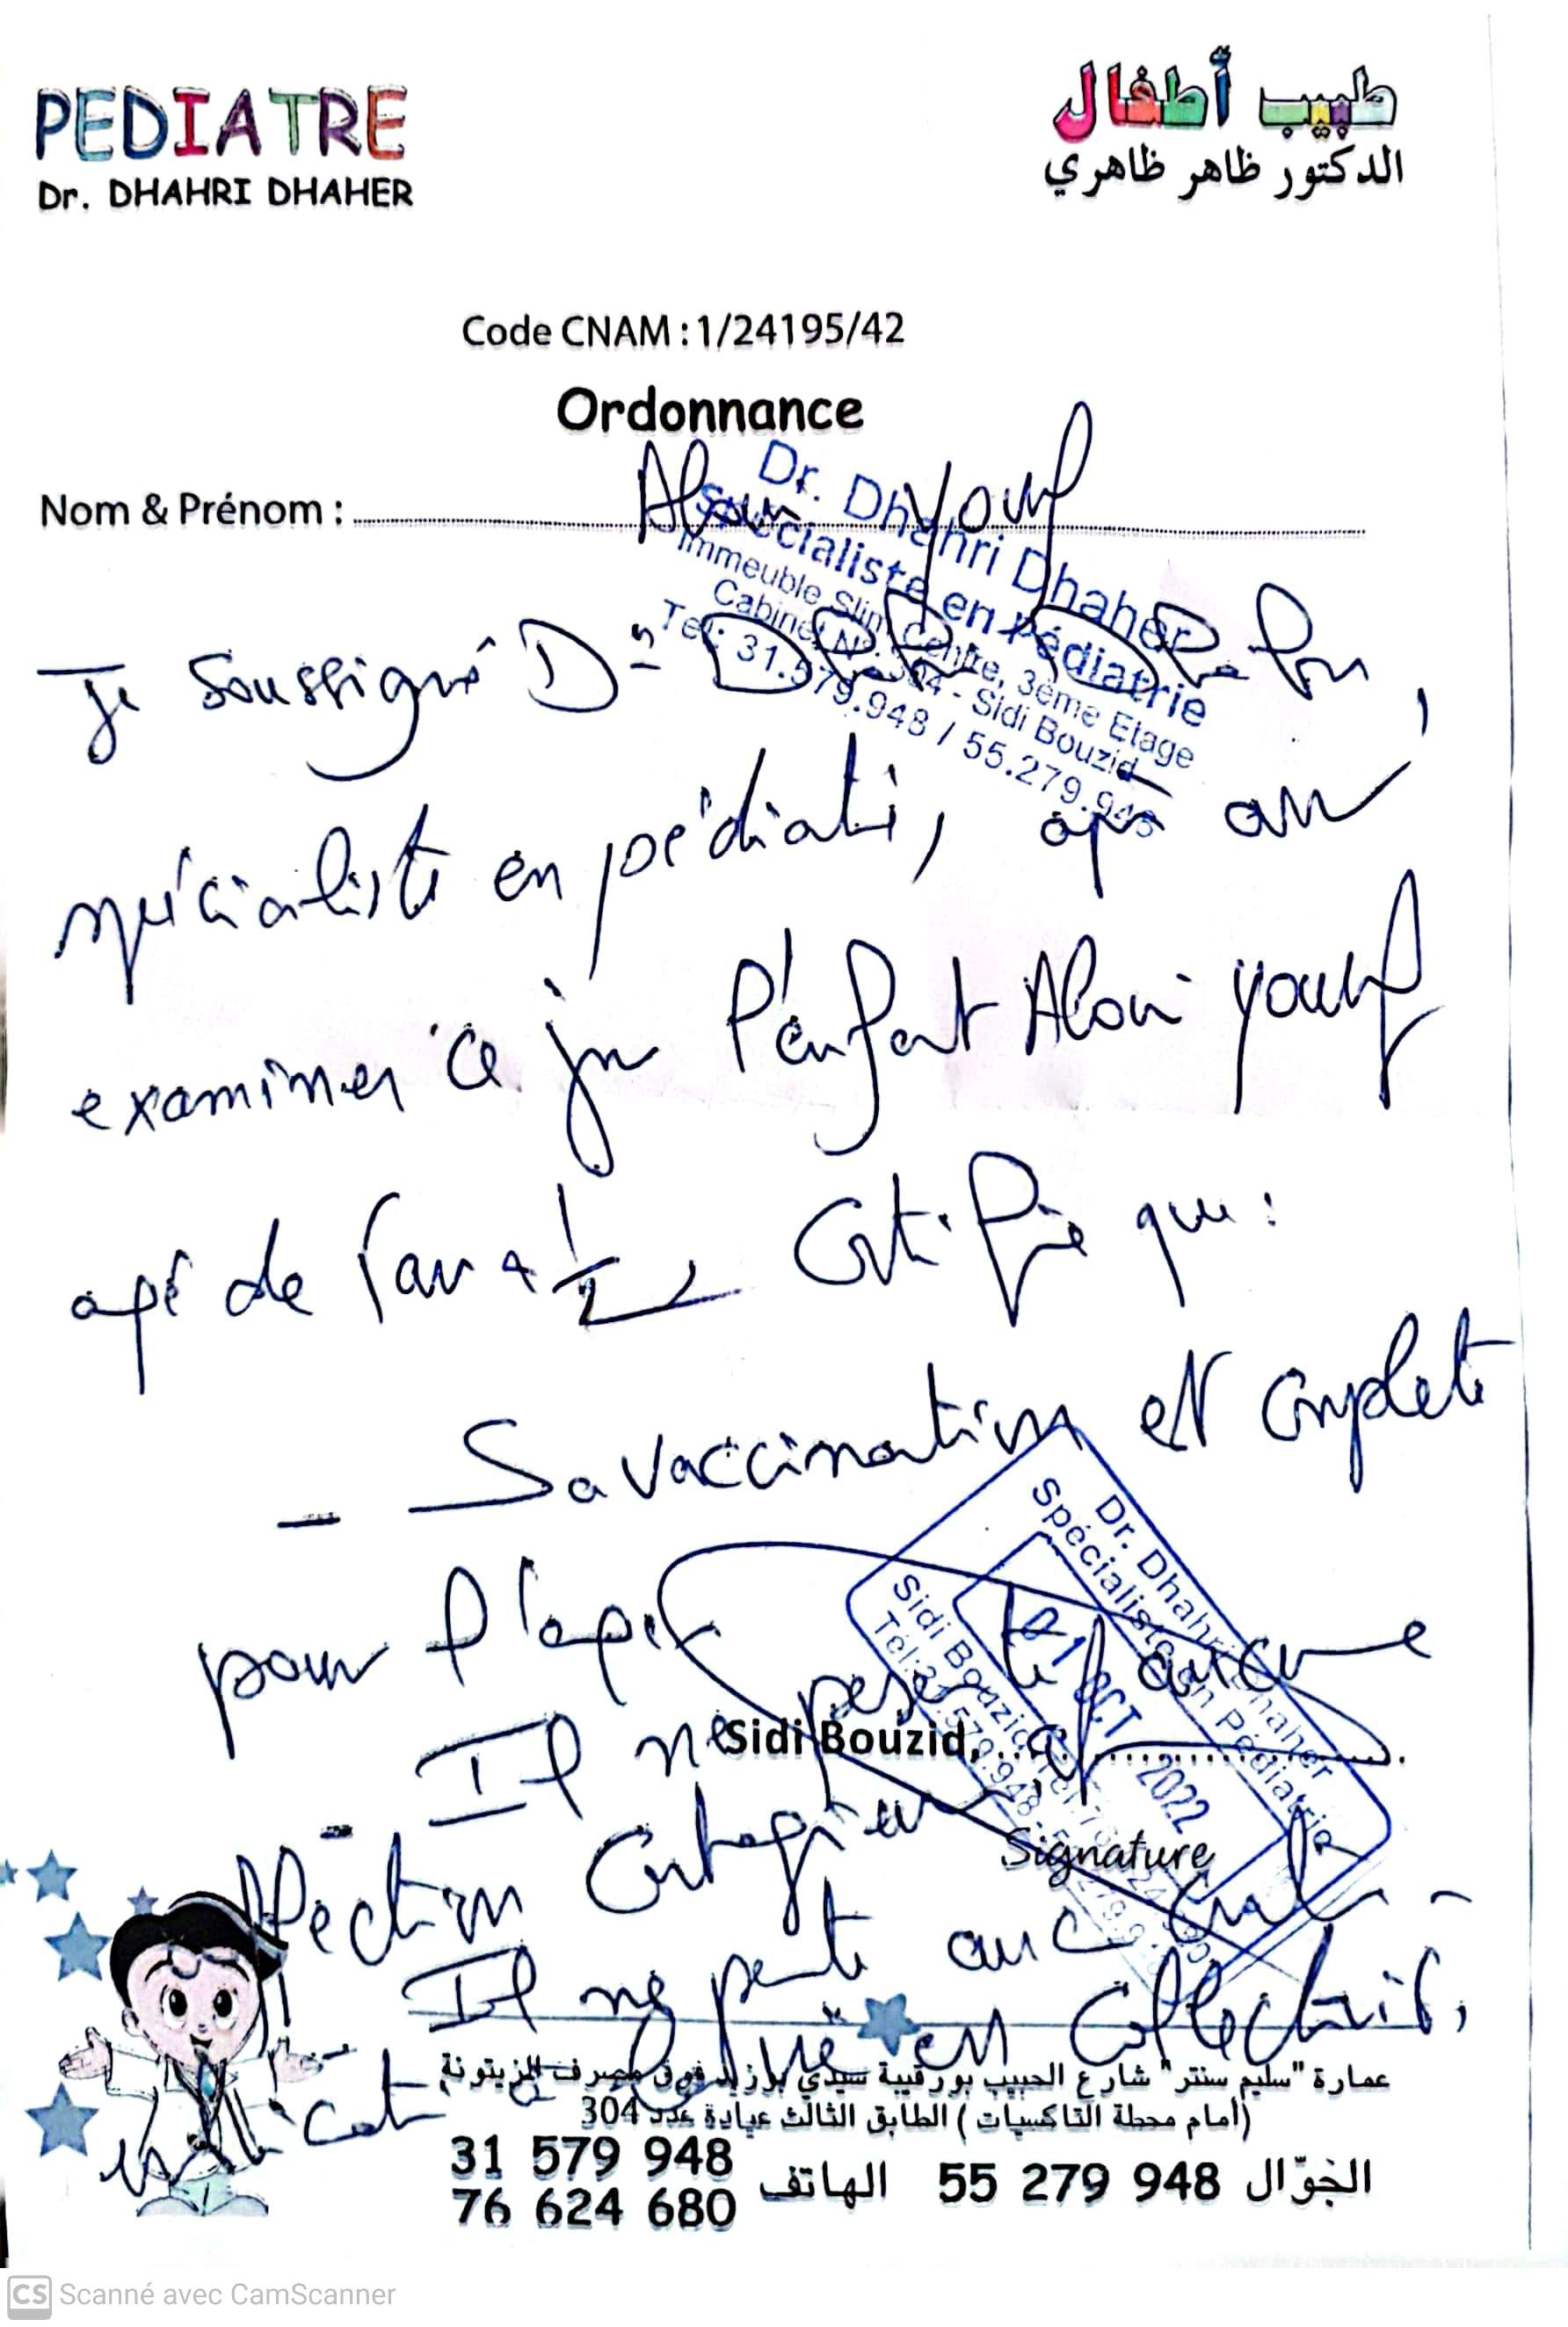 PEDIATRE
Dr. DHAHRI DHAHER
طبيب أطفال
الدكتور ظاهر ظاهري
Code CNAM : 1/24195/42
Ordonnance
Nom & Prénom :
Dr. Dhahri Dhaher
Spécialiste en Pédiatrie
Immeuble Slim Centre, 3ème Etage
Cabinet N° 304 - Sidi Bouzid
Tel: 31.579.948 / 55.279.948
Je soussigné Dr Dhahri Dhaher,
spécialiste en pédiatrie, après avoir
examiner ce jour l'enfant Aloui Yousef
agé de 5 ans 1/2 Certifie que :
- Sa vaccination est complete
pour l'age
- Il ne présente aucune
affection Contagieuse
- Il ne présente aucune Contre-
indication en Collectivité,
Dr. Dhahri Dhaher
Spécialiste en Pédiatrie
01 OCT 2022
Sidi Bouzid
Tél: 31.579.948
Sidi Bouzid,
Signature
عمارة "سليم سنتر" شارع الحبيب بورقيبة سيدي بوزيد فوق مصرف الزيتونة
(أمام محطة التاكسيات) الطابق الثالث عيادة عدد 304
الجوّال 948 279 55 الهاتف 948 579 31
76 624 680
CS Scanné avec CamScanner